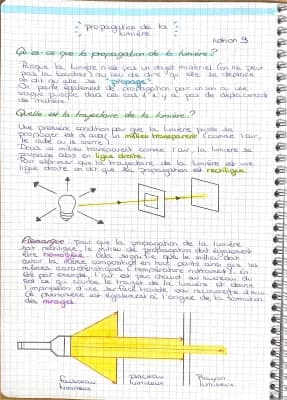 "propagation de la
lumière"
Notion 3
Qu'est-ce que la propagation de la lumière ?
Puisque la lumière n'est pas un objet matériel (on ne peut
pas la toucher) au lieu de dire qu'elle se déplace
on dit qu'elle se "propage".
On parle également de propagation pour un son ou une
vague puisque dans ces cas il n'y a pas de déplacement
de matière.
Quelle est la trajectoire de la lumière ?
Une première condition pour que la lumière puisse se
propager est d'avoir un milieu transparent (comme l'air,
le vide ou le verre).
Dans un milieu transparent comme l'air, la lumière se
propage dans en ligne droite.
Pour exprimer que la trajectoire de la lumière est une
ligne droite on dit que sa propagation est rectiligne.
Remarque : pour que la propagation de la lumière
soit rectiligne, le milieu de propagation doit également
être homogène. Cela signifie que le milieu doit
avoir la même composition en tout points ainsi que les
mêmes caractéristiques (température notamment). En
été par exemple, l'air est plus chaud au niveau du
sol ce qui courbe le trajet de la lumière et donne
l'impression d'une surface mouillée par recouverte d'eau
Ce phénomène est également à l'origine de la formation
des mirages.
faisceau
lumineux
pinceau
lumineux
Rayon
lumineux